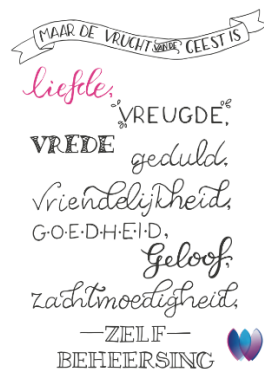 MAAR DE VRUCHT VAN DE GEEST IS
liefde,
VREUGDE,
VREDE
geduld,
vriendelijkheid,
G·O·E·D·H·E·I·D,
Geloof,
zachtmoedigheid,
—ZELF—
BEHEERSING